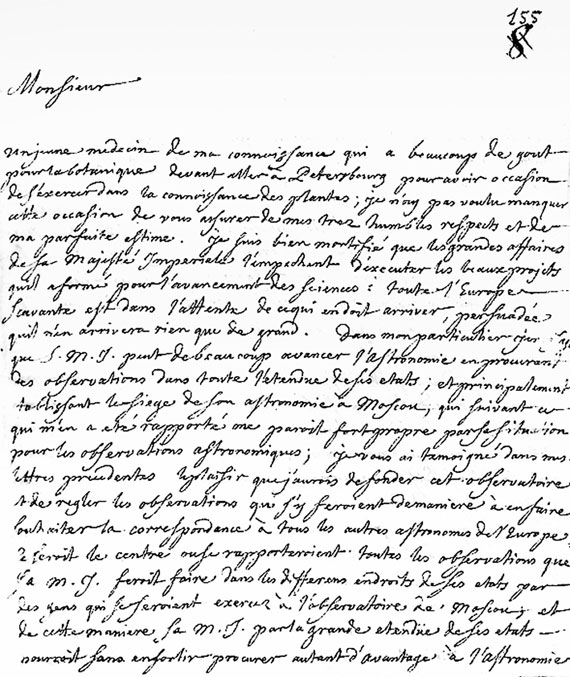 155
8
Monsieur
un jeune medecin de ma connoissance qui a beaucoup de gout
pour la botanique devant aller à Petersbourg pour avoir occasion
de s'exercer dans la connoissance des plantes; je n'ay pas voulu manquer
cette occasion de vous assurer de mes tres humbles respects et de
ma parfaite estime. je suis bien mortifié que les grandes affaires
de sa Majesté Imperiale l'empechent d'executer les beaux projets
qu'il a formé pour l'avancement des sciences: toute l'Europe
scavante est dans l'attente de ce qui en doit arriver, persuadée
qu'il n'en arrivera rien que de grand. Dans mon particulier
que S. M. I. peut de beaucoup avancer l'astronomie en procurant
des observations dans toute l'etendue de ses etats; et principalement
etablissant le siege de son astronomie à Moscou, qui suivant ce
qui m'en a eté rapporté me paroit fort propre par sa situation
pour les observations astronomiques; je vous ai temoigné dans mes
lettres precedentes le plaisir que j'aurois de fonder cet observatoire
et de regler les observations qui s'y feroient de maniere à en faire
la correspondance à tous les autres astronomes de l'Europe
il seroit le centre ou se rapporteroient toutes les observations que
sa M. I. feroit faire dans les differens endroits de ses etats par
des gens qui se seroient exercez à l'observatoire de Moscou; et
de cette maniere sa M. I. par la grande etendue de ses etats
pourroit sans en sortir procurer autant d'avantage à l'astronomie